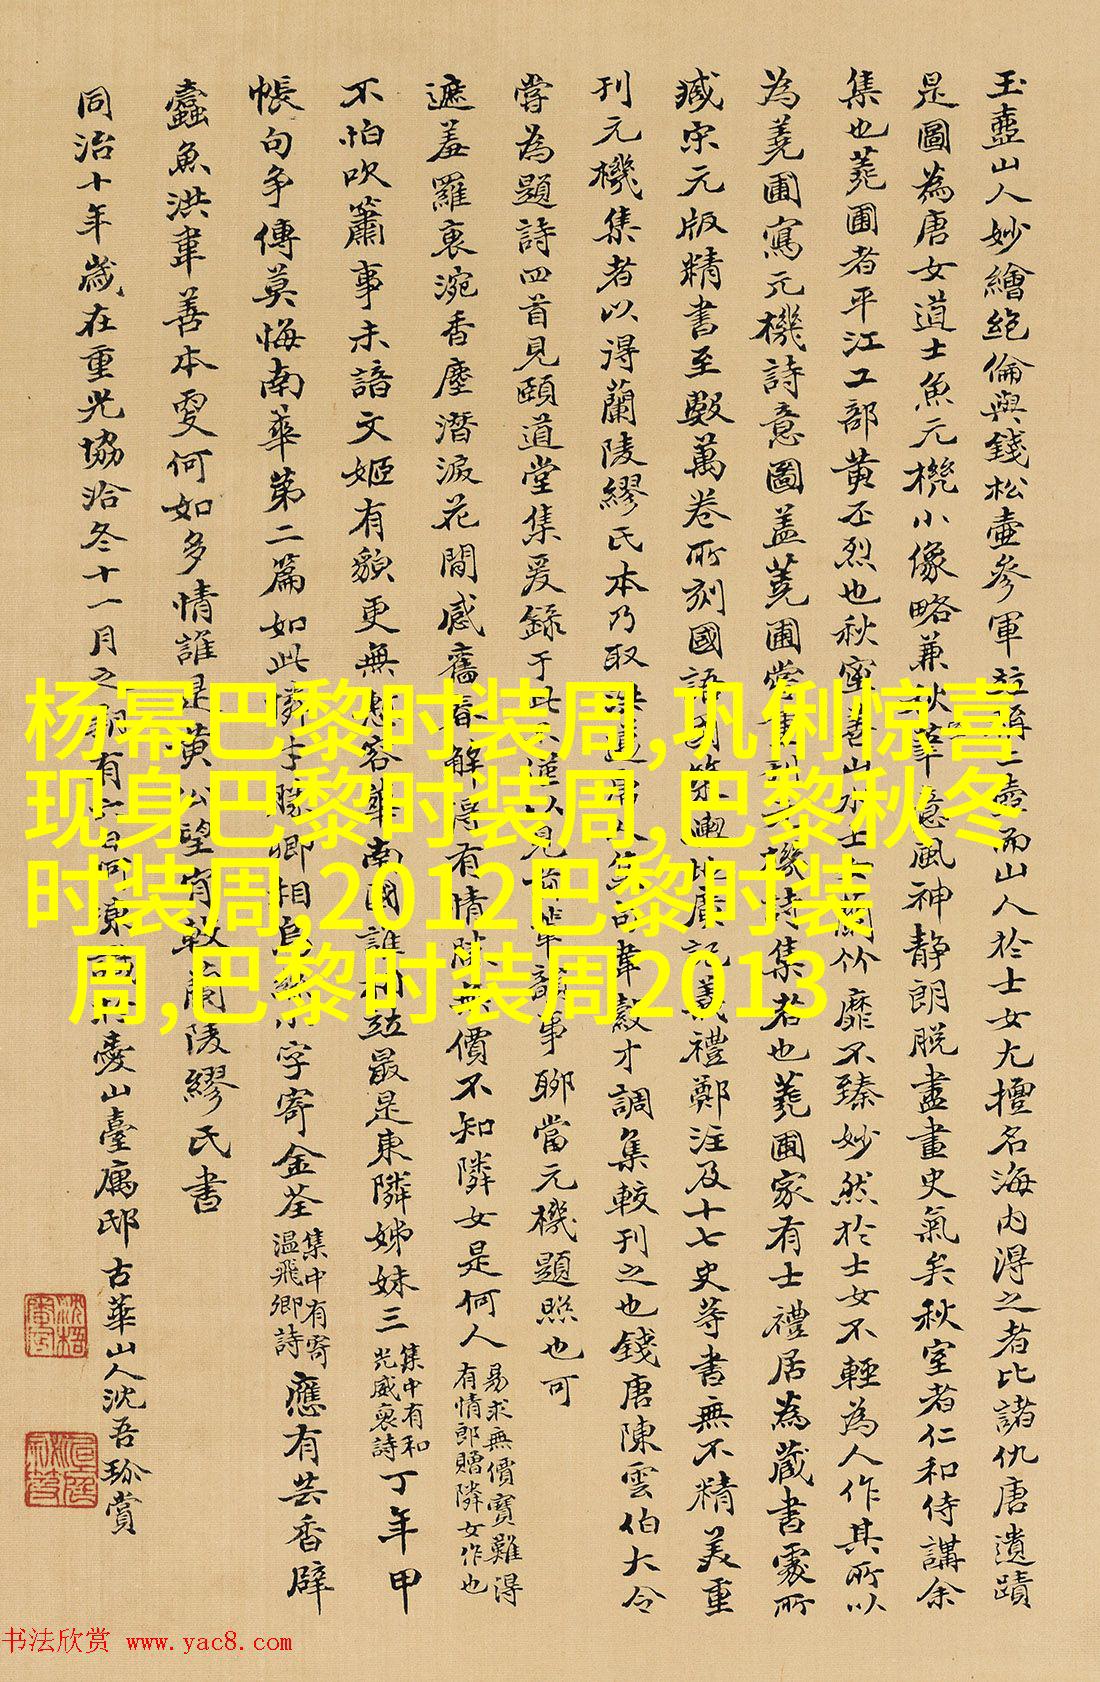 玉壺山人妙繪絕倫與錢松壺參軍竝稱二壺而山人於士女尤擅名海內得之者比諸仇唐遺蹟
是圖為唐女道士魚元機小像略兼秋筆意風神靜朗脫盡畫史氣矣秋室者仁和侍講余
集也蕘圃者平江工部黃丕烈也秋室善山水士女蘭竹靡不臻妙然於士女不輕為人作其所以
為蕘圃寫元機詩意圖蓋蕘圃嘗重刊元機詩集者也蕘圃家有士禮居為藏書處所
臧宋元版精書至數萬卷所刻國語國策輿地廣記儀禮鄭注及十七史等書無不精美重
刊元機集者以得蘭陵繆氏本乃取洪遵集韋縠才調集較刊之也錢唐陳雲伯大令
嘗為題詩四首見頤道堂集爰錄于此不僅以見前輩韻事聊當元機題照也可
遮羞羅裏涴香塵潛淚花間感舊春解得有情無價不知隣女是何人
易求無價寶難得
有情郎贈隣女作也
不怕吹簫事未諳文姬有貌更無慙容華南國誰相竝最是東隣姊妹三
集中有和
光威裒詩
丁年甲
帳句爭傳莫悔南華第二篇如此卿相字寄金荃
集中有寄
溫飛卿詩
應有芸香辟
蠹魚洪韋善本更何如多情誰是黃公望蘭陵繆氏書
同治十年歲在重光協洽冬十一月之有六日同山臺寓邸古華山人沈吾珎賞
杨幂巴黎时装周,巩俐惊喜
现身巴黎时装周,巴黎秋冬
时装周,2012巴黎时装
周,巴黎时装周2013
书法欣赏 www.yac8.com